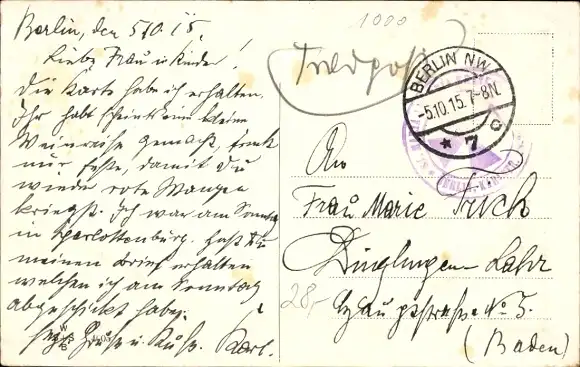 Berlin, den 5.10.15.
Liebe Frau u. Kinder!
Die Karte habe ich erhalten.
Ihr habt scheint eine kleine
Weinreise gemacht, trink
nur feste, damit Du
wieder rote Wangen
kriegst. Ich war am Sonntag
in Charlottenburg. Hast Du
meinen Brief erhalten
welchen ich am Sonntag
abgeschickt habe.
Gruß u. Kuß. Karl.
1000
Feldpost
BERLIN NW
-5.10.15. 7-8N.
* 7 c
An
Frau Marie
Dinglingen-Lahr
Hauptstraße No 5.
(Baden)
28,-